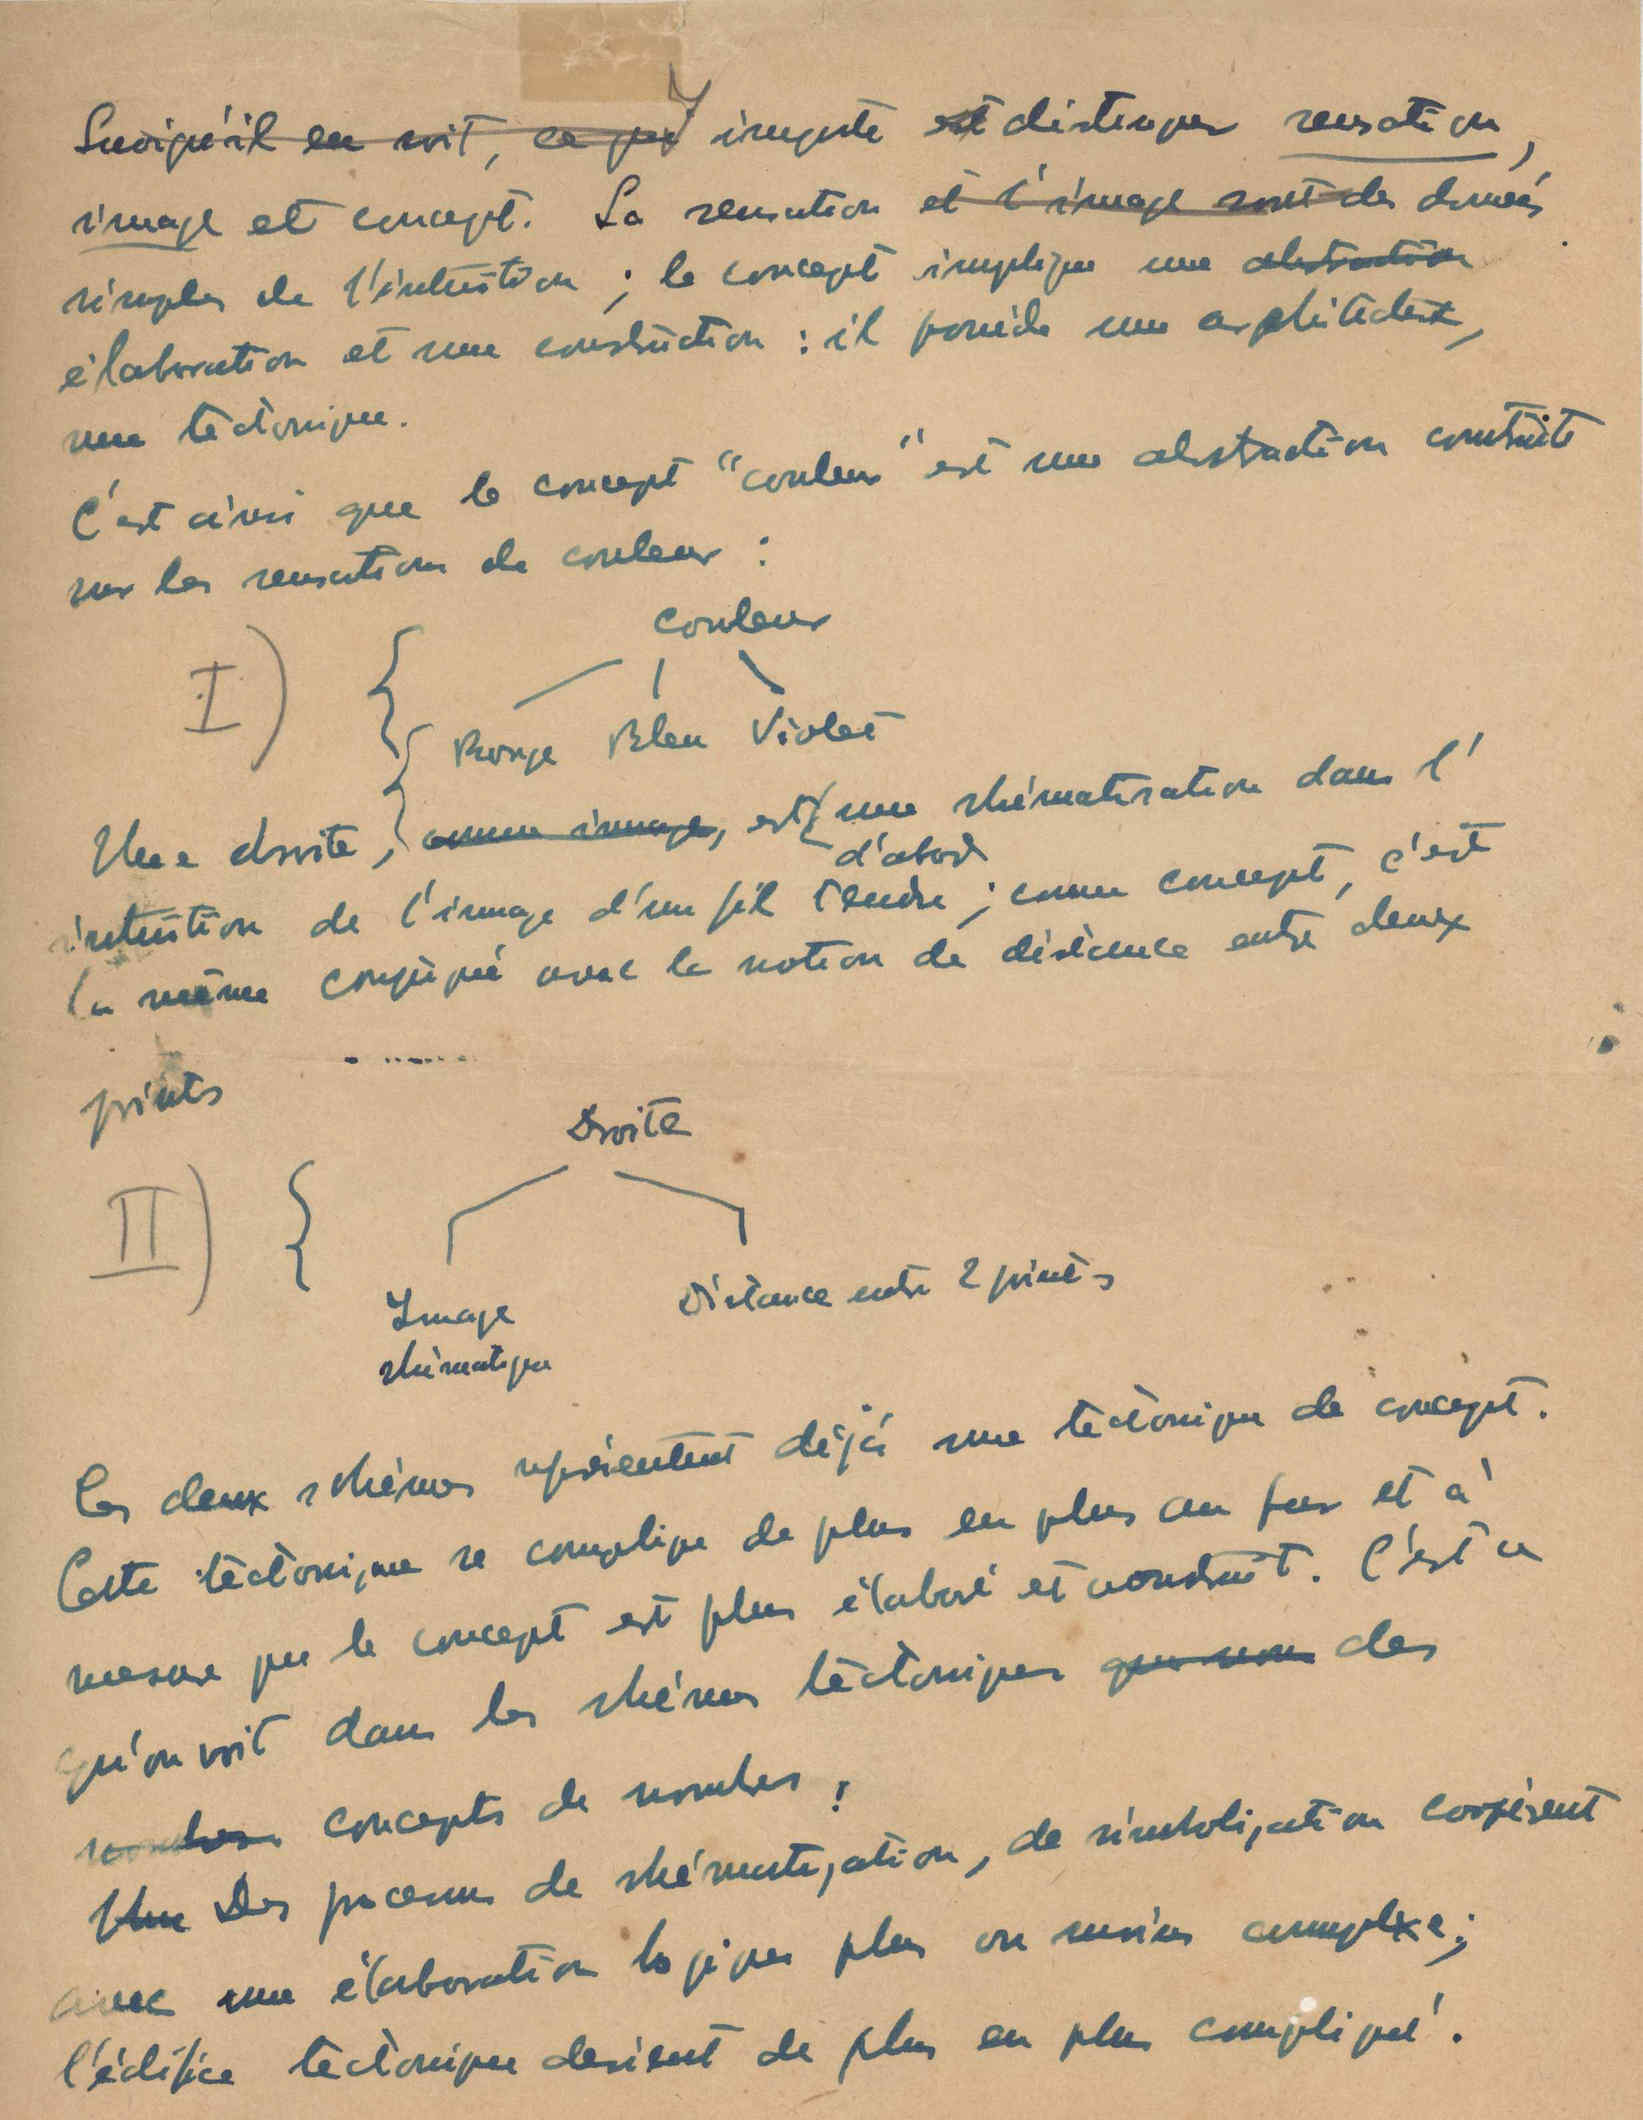 Quoiqu'il en soit, ce qui Y importe est distinguer sensation,
image et concept. La sensation et l'image sont des données
simples de l'intuition ; le concept implique une abstraction
élaboration et une construction : il possède une architecture,
une tectonique.
C'est ainsi que le concept "couleur" est une abstraction construite
sur les sensations de couleur :
Couleur
I)
Rouge Bleu Violet
Une droite, comme image, est une schématisation dans l'
d'abord
intuition de l'image d'un fil tendu ; comme concept, c'est
la même conjugué avec la notion de distance entre deux
points
Droite
II)
Image Distance entre 2 points
schématique
Ces deux schémas représentent déjà une tectonique de concept.
Cette tectonique se complique de plus en plus au fur et à
mesure que le concept est plus élaboré et construit. C'est ce
qu'on voit dans les schémas tectoniques que nous des
nombres concepts de nombres :
Une Des processus de schématisation, de simbolisation coopèrent
avec une élaboration logique plus ou moins complexe ;
l'édifice tectonique devient de plus en plus compliqué.